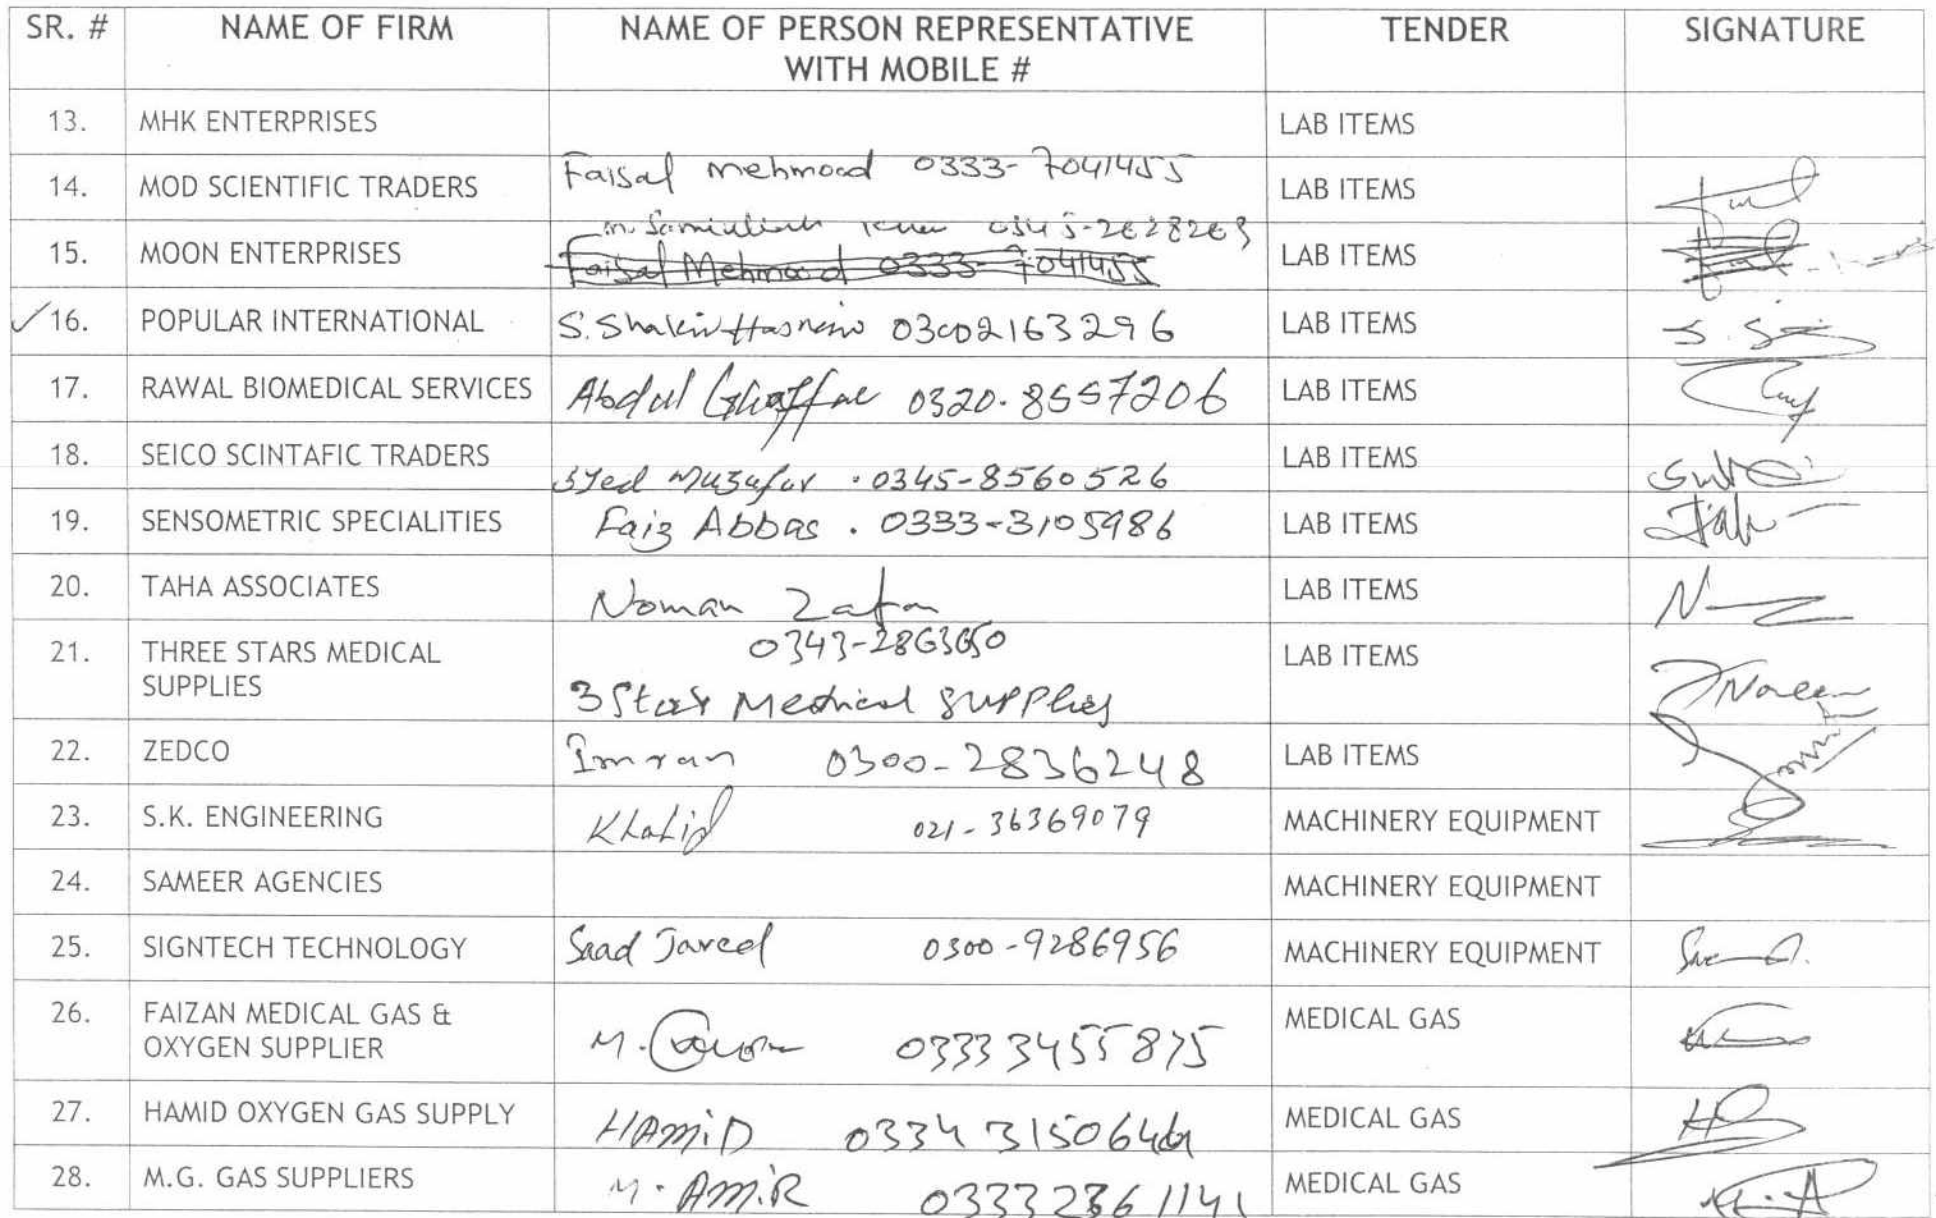 SR. # NAME OF FIRM NAME OF PERSON REPRESENTATIVE WITH MOBILE # TENDER SIGNATURE
13. MHK ENTERPRISES LAB ITEMS
14. MOD SCIENTIFIC TRADERS Faisal Mehmood 0333-7041455 LAB ITEMS
15. MOON ENTERPRISES LAB ITEMS
Faisal Mehmood 0333-7041455
16. POPULAR INTERNATIONAL S. Shakir Hasnain 03002163296 LAB ITEMS
17. RAWAL BIOMEDICAL SERVICES Abdul Ghaffar 0320-8557206 LAB ITEMS
18. SEICO SCINTAFIC TRADERS Syed Muzafar . 0345-8560526 LAB ITEMS
19. SENSOMETRIC SPECIALITIES Faiz Abbas . 0333-3105986 LAB ITEMS
20. TAHA ASSOCIATES Noman Zafar LAB ITEMS
21. THREE STARS MEDICAL SUPPLIES LAB ITEMS Naeem
3 Star Medical Supplies
22. ZEDCO Imran 0300-2836248 LAB ITEMS
23. S.K. ENGINEERING Khalid 021-36369079 MACHINERY EQUIPMENT
24. SAMEER AGENCIES MACHINERY EQUIPMENT
25. SIGNTECH TECHNOLOGY Saad Javed 0300-9286956 MACHINERY EQUIPMENT
26. FAIZAN MEDICAL GAS & OXYGEN SUPPLIER M. 03333455875 MEDICAL GAS
27. HAMID OXYGEN GAS SUPPLY HAMiD MEDICAL GAS
28. M.G. GAS SUPPLIERS M. AMiR 03332361141 MEDICAL GAS